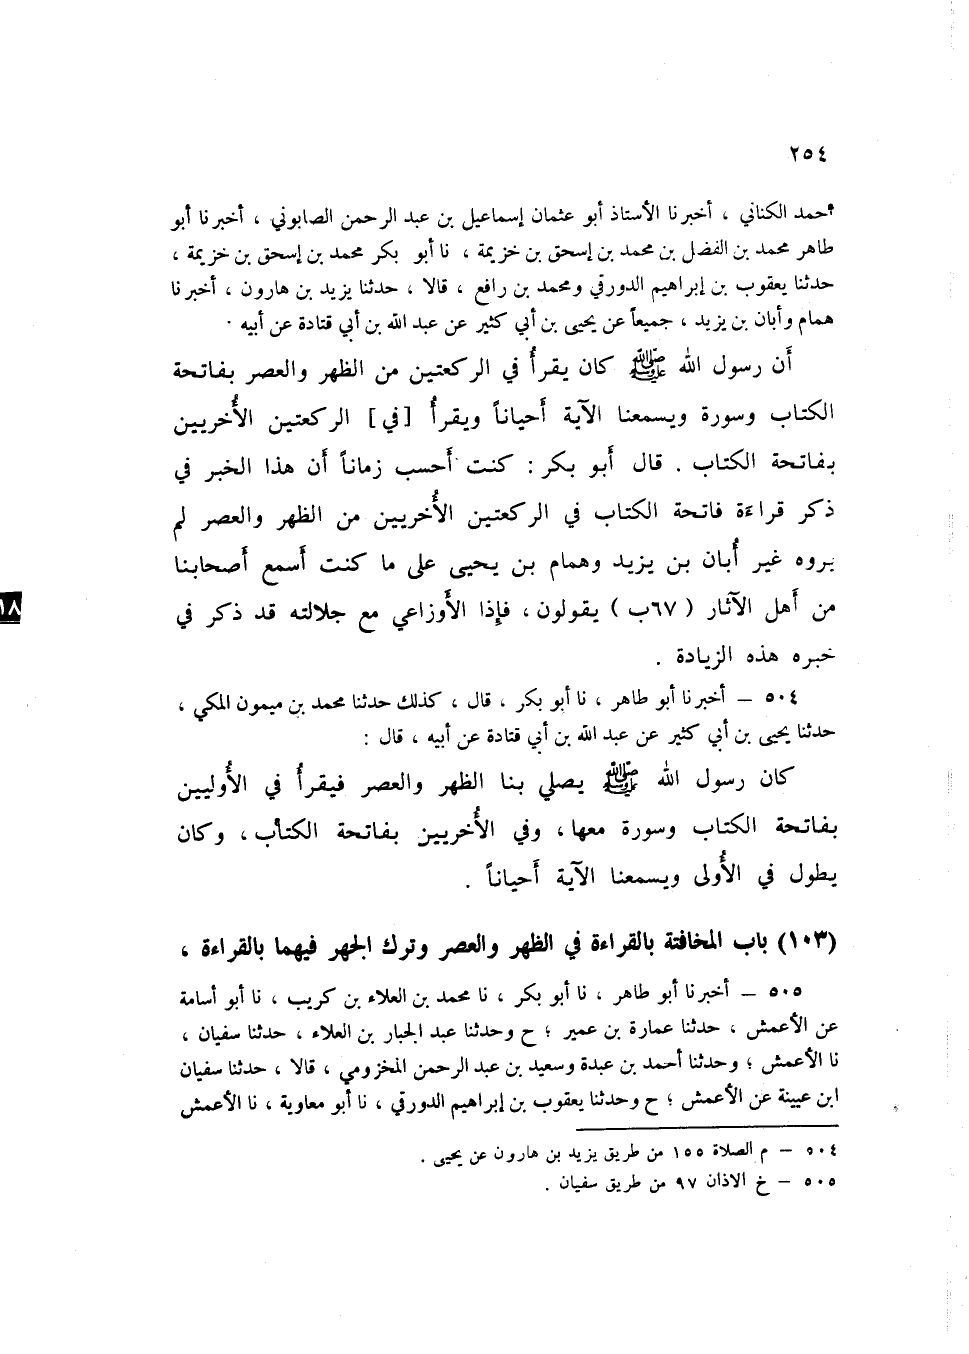 ٢٥٤
أحمد الكناني ، أخبرنا الأستاذ أبو عثمان إسماعيل بن عبد الرحمن الصابوني ، أخبرنا أبو
طاهر محمد بن الفضل بن محمد بن إسحق بن خزيمة ، نا أبو بكر محمد بن إسحق بن خزيمة ،
حدثنا يعقوب بن إبراهيم الدورقي ومحمد بن رافع ، قالا ، حدثنا يزيد بن هارون ، أخبرنا
همام وأبان بن يزيد ، جميعاً عن يحيى بن أبي كثير عن عبد الله بن أبي قتادة عن أبيه .
أن رسول الله ﷺ كان يقرأُ في الركعتين من الظهر والعصر بفاتحة
الكتاب وسورة ويسمعنا الآية أحياناً ويقرأُ [في] الركعتين الأُخريين
بفاتحة الكتاب . قال أبو بكر : كنت أحسب زماناً أن هذا الخبر في
ذكر قراءة فاتحة الكتاب في الركعتين الأُخريين من الظهر والعصر لم
يروه غير أُبان بن يزيد وهمام بن يحيى على ما كنت أسمع أصحابنا
من أهل الآثار ( ٦٧ب ) يقولون، فإذا الأوزاعي مع جلالته قد ذكر في
خبره هذه الزيادة .
٥٠٤ – أخبرنا أبو طاهر ، نا أبو بكر ، قال ، كذلك حدثنا محمد بن ميمون المكي ،
حدثنا يحيى بن أبي كثير عن عبد الله بن أبي قتادة عن أبيه ، قال :
كان رسول الله ﷺ يصلي بنا الظهر والعصر فيقرأُ في الأُوليين
بفاتحة الكتاب وسورة معها، وفي الأُخريين بفاتحة الكتاب، وكان
يطول في الأُولى ويسمعنا الآية أحياناً .
(١٠٣) باب المخافتة بالقراءة في الظهر والعصر وترك الجهر فيهما بالقراءة ،
٥٠٥ – أخبرنا أبو طاهر ، نا أبو بكر ، نا محمد بن العلاء بن كريب ، نا أبو أسامة
عن الأعمش ، حدثنا عمارة بن عمير ؛ ح وحدثنا عبد الجبار بن العلاء ، حدثنا سفيان ،
نا الأعمش ؛ وحدثنا أحمد بن عبدة وسعيد بن عبد الرحمن المخزومي ، قالا ، حدثنا سفيان
ابن عيينة عن الأعمش ؛ ح وحدثنا يعقوب بن إبراهيم الدورقي ، نا أبو معاوية ، نا الأعمش
٥٠٤ – م الصلاة ١٥٥ من طريق يزيد بن هارون عن يحيى .
٥٠٥ – خ الاذان ٩٧ من طريق سفيان .
١٨